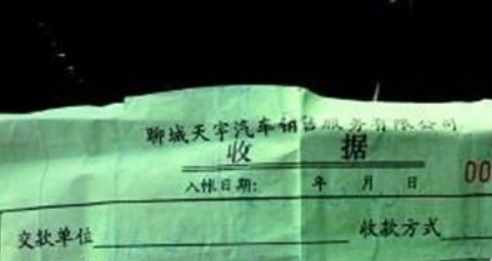 聊城天宇汽车销售服务有限公司
收 据
入帐日期: 年 月 日 00
交款单位 收款方式